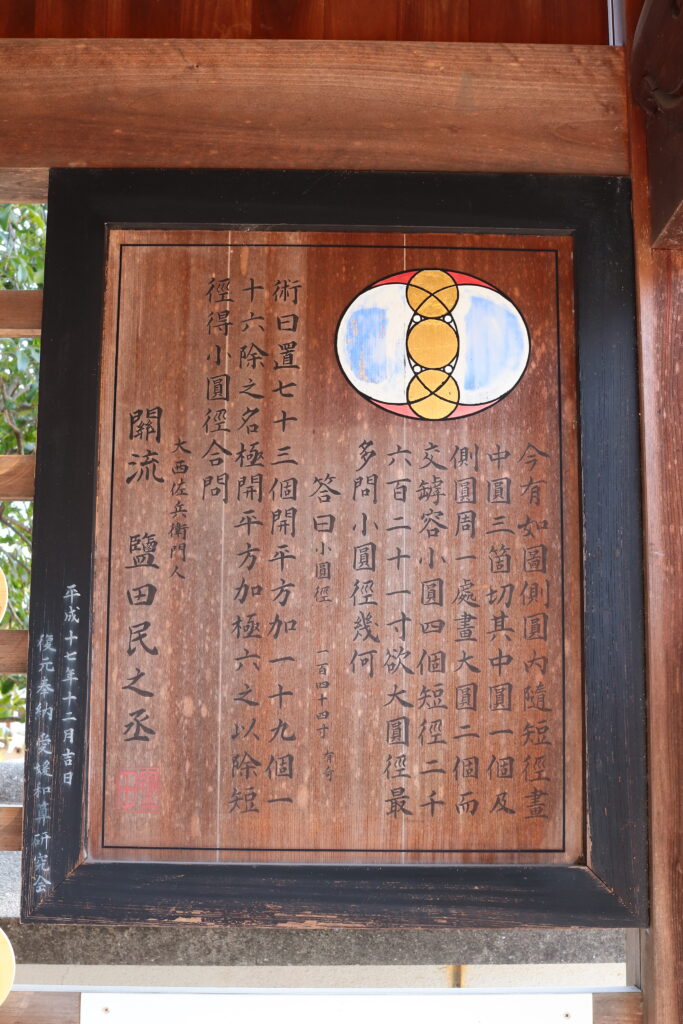 今有如圖側圓內隨短徑畫
中圓三箇切其中圓一個及
側圓周一處畫大圓二個而
交罅容小圓四個短徑二千
六百二十一寸欲大圓徑最
多問小圓徑幾何
答曰小圓徑一百四十四寸有奇
術曰置七十三個開平方加一十九個一
十六除之名極開平方加極六之以除短
徑得小圓徑合問
大西佐兵衛門人
關流 鹽田民之丞
平成十七年十二月吉日
復元奉納 愛媛和算研究会